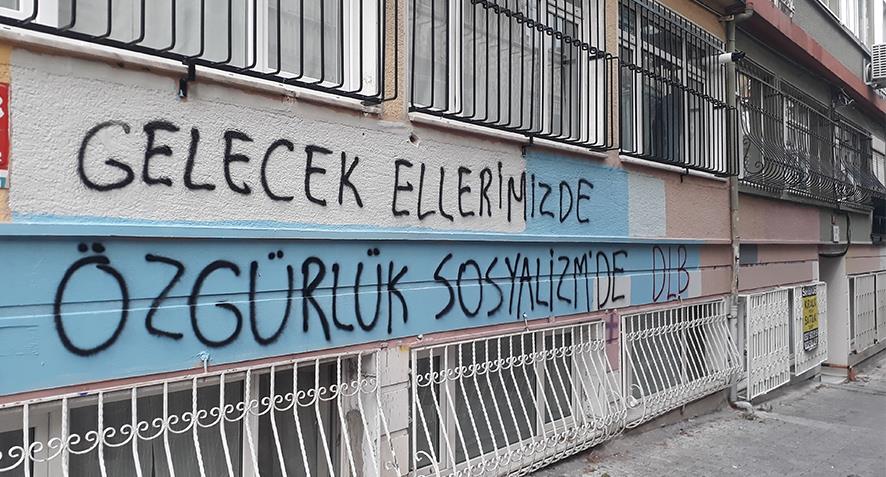 GELECEK ELLERİMİZDE
ÖZGÜRLÜK SOSYALİZM'DE DLB